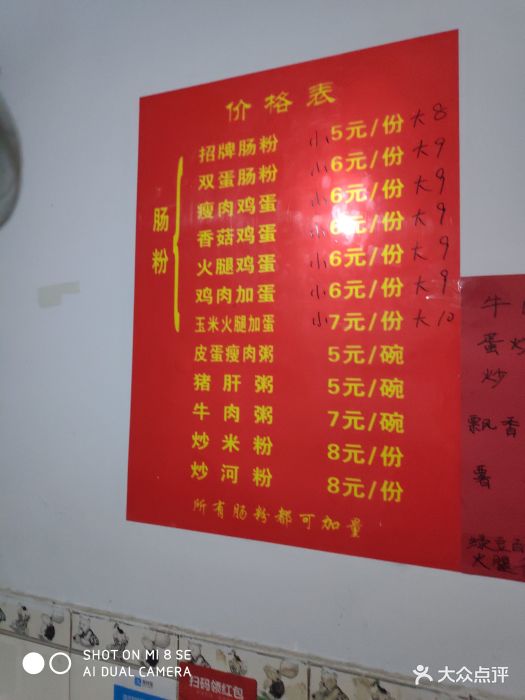 价格表
肠粉
招牌肠粉 小5元/份 大8
双蛋肠粉 小6元/份 大9
瘦肉鸡蛋 小6元/份 大9
香菇鸡蛋 小6元/份 大9
火腿鸡蛋 小6元/份 大9
鸡肉加蛋 小6元/份 大9
玉米火腿加蛋 小7元/份 大10
皮蛋瘦肉粥 5元/碗
猪肝粥 5元/碗
牛肉粥 7元/碗
炒米粉 8元/份
炒河粉 8元/份
所有肠粉都可加量
牛
蛋炒
炒
飘香
薯
绿豆
火腿
扫码领红包
SHOT ON MI 8 SE
AI DUAL CAMERA
大众点评